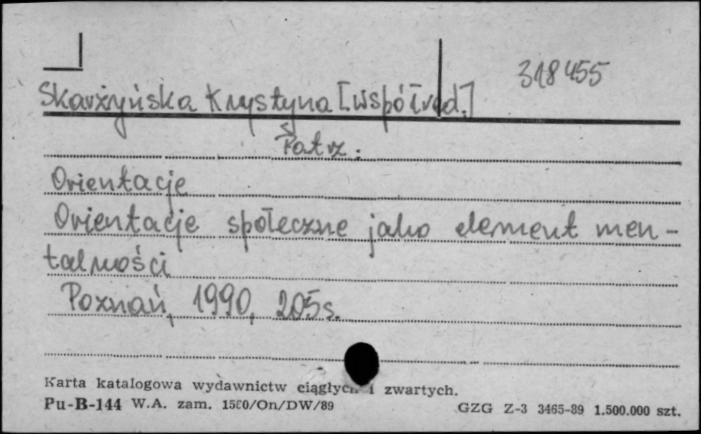 318455
Skarżyńska Krystyna [współred.]
Patrz:
Orientacje
Orientacje społeczne jako element men-
talności
Poznań, 1990, 205 s.
Karta katalogowa wydawnictw ciągłych i zwartych.
Pu-B-144 W.A. zam. 1580/On/DW/89 GZG Z-3 3465-89 1.500.000 szt.